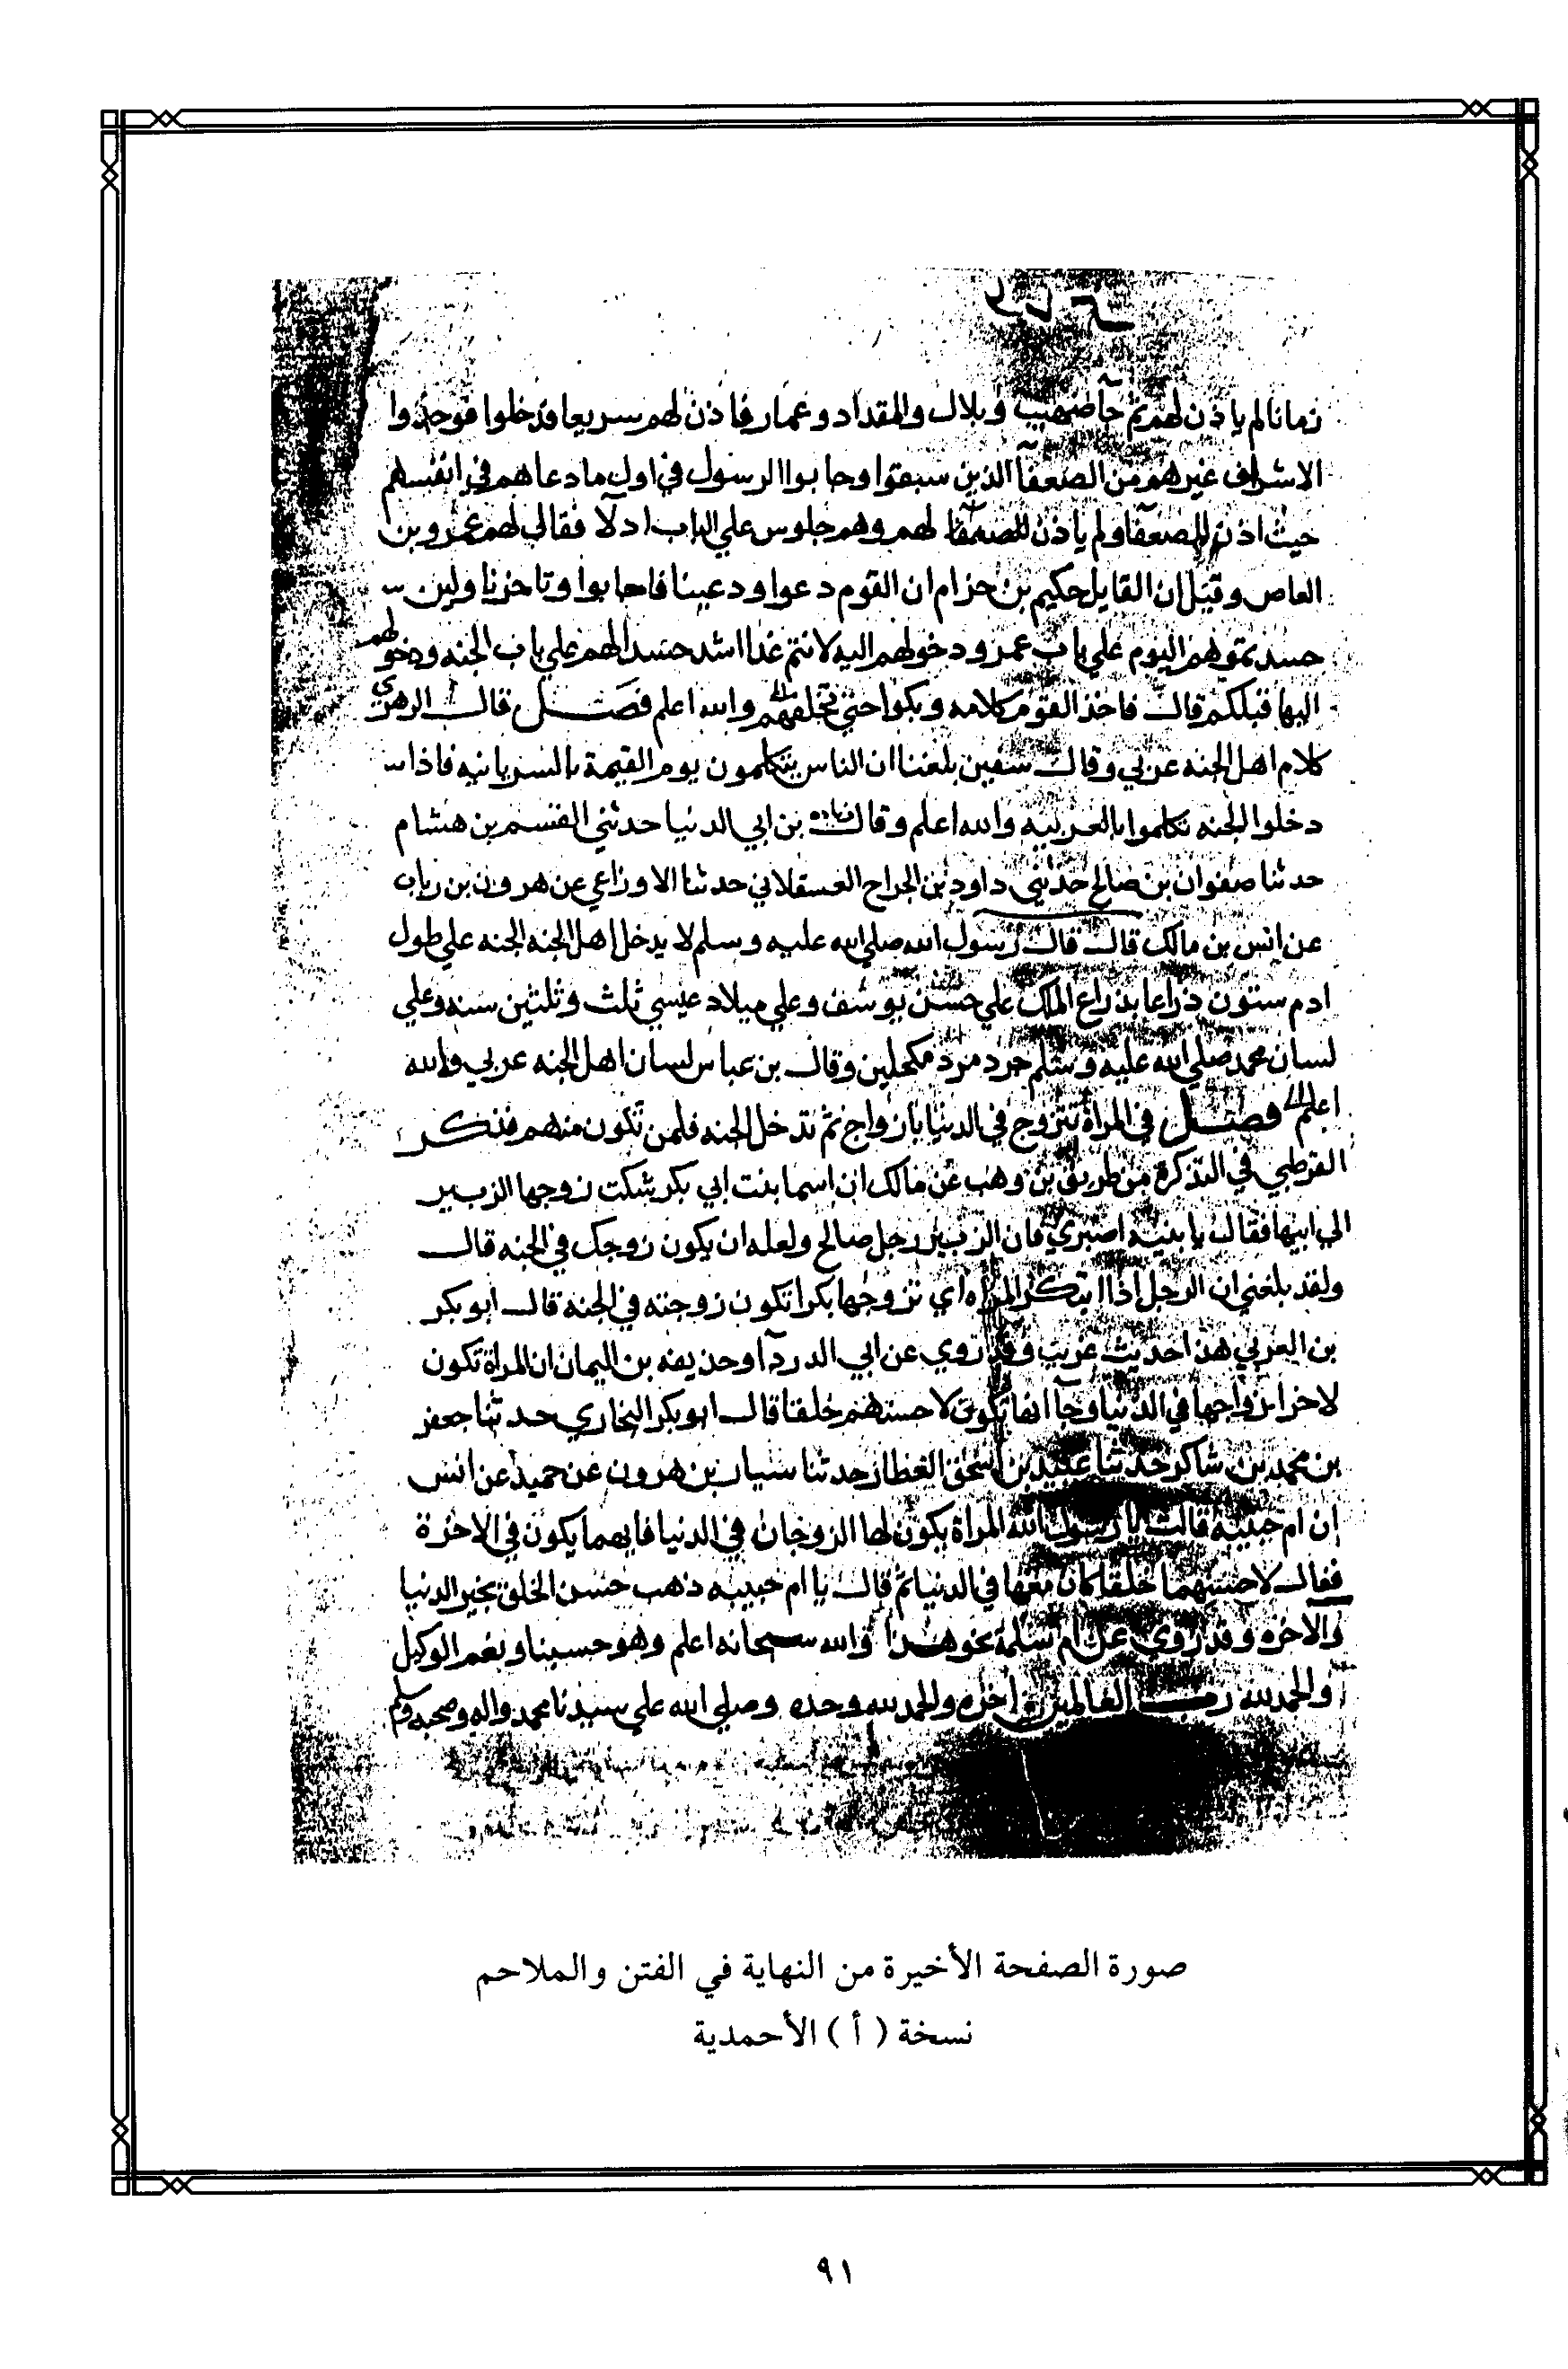 زمانا لم ياذن لهم ثم جآ صهيب وبلال والمقداد وعمار فاذن لهم سريعا فدخلوا فوجدوا
الاشراف غيرهم من الضعفآ الذين سبقوا وجابوا الرسول في اول ما دعاهم في انفسهم
حيث اذن للضعفآ ولم ياذن لهم وهم جلوس علي الباب اذلآ فقال لهم عمرو بن
العاص وقيل ان القايل حكيم بن حزام ان القوم دعوا ودعينا فاجابوا وتاخرنا ولين
حسدتموهم اليوم علي باب عمر ودخولهم اليه لانتم غدا اشد حسدا لهم علي باب الجنه ودخولهم
اليها قبلكم قال فاخذ القوم كلامه وبكوا حتي والله اعلم فصل قال الزهري
كلام اهل الجنه عربي وقال سفين بلغنا ان الناس يتكلمون يوم القيمة بالسريانيه فاذا
دخلوا الجنه تكلموا بالعربيه والله اعلم وقال بن ابي الدنيا حدثني القسم بن هشام
حدثنا صفوان بن صالح حدثني داود بن الجراح العسقلاني حدثنا الاوزاعي عن هرون بن رياب
عن انس بن مالك قال قال رسول الله صلي الله عليه وسلم لا يدخل اهل الجنه الجنه علي طول
ادم ستون ذراعا بذراع الملك علي حسن يوسف وعلي ميلاد عيسي ثلث وثلثين سنه وعلي
لسان محمد صلي الله عليه وسلم جرد مرد مكحلين وقال بن عباس لسان اهل الجنه عربي والله
اعلم فصل في المراة تتزوج في الدنيا بازواج ثم تدخل الجنه فلمن تكون منهم فذكر
القرطبي في التذكرة من طريق بن وهب عن مالك ان اسما بنت ابي بكر شكت زوجها الزبير
الي ابيها فقال يا بنيه اصبري فان الزبير رجل صالح ولعله ان يكون زوجك في الجنه قال
ولقد بلغني ان الرجل اذا ابتكر المراه اي تزوجها بكرا تكون زوجته في الجنة قال ابو بكر
بن العربي هذا حديث غريب وقد روي عن ابي الدردآ وحذيفه بن اليمان ان المراة تكون
لاخر ازواجها في الدنيا وجآ انها تكون لاحسنهم خلقا قال ابو بكر النجاري حدثنا جعفر
بن محمد بن شاكر حدثنا عبيد بن اسحق العطار حدثنا سنان بن هرون عن حميد عن انس
ان ام حبيبه قالت يا رسول الله المراة يكون لها الزوجان في الدنيا فايهما يكون في الاخرة
فقال لاحسنهما خلقا كان معها في الدنيا ثم قال يا ام حبيبه ذهب حسن الخلق بخير الدنيا
والاخره وقد روي عن ام سلمة نحو هذا والله سبحانه اعلم وهو حسبنا ونعم الوكيل
والحمد لله رب العالمين اخره والحمد لله وحده وصلي الله علي سيدنا محمد واله وصحبه وسلم
صورة الصفحة الأخيرة من النهاية في الفتن والملاحم
نسخة ( أ ) الأحمدية
٩١